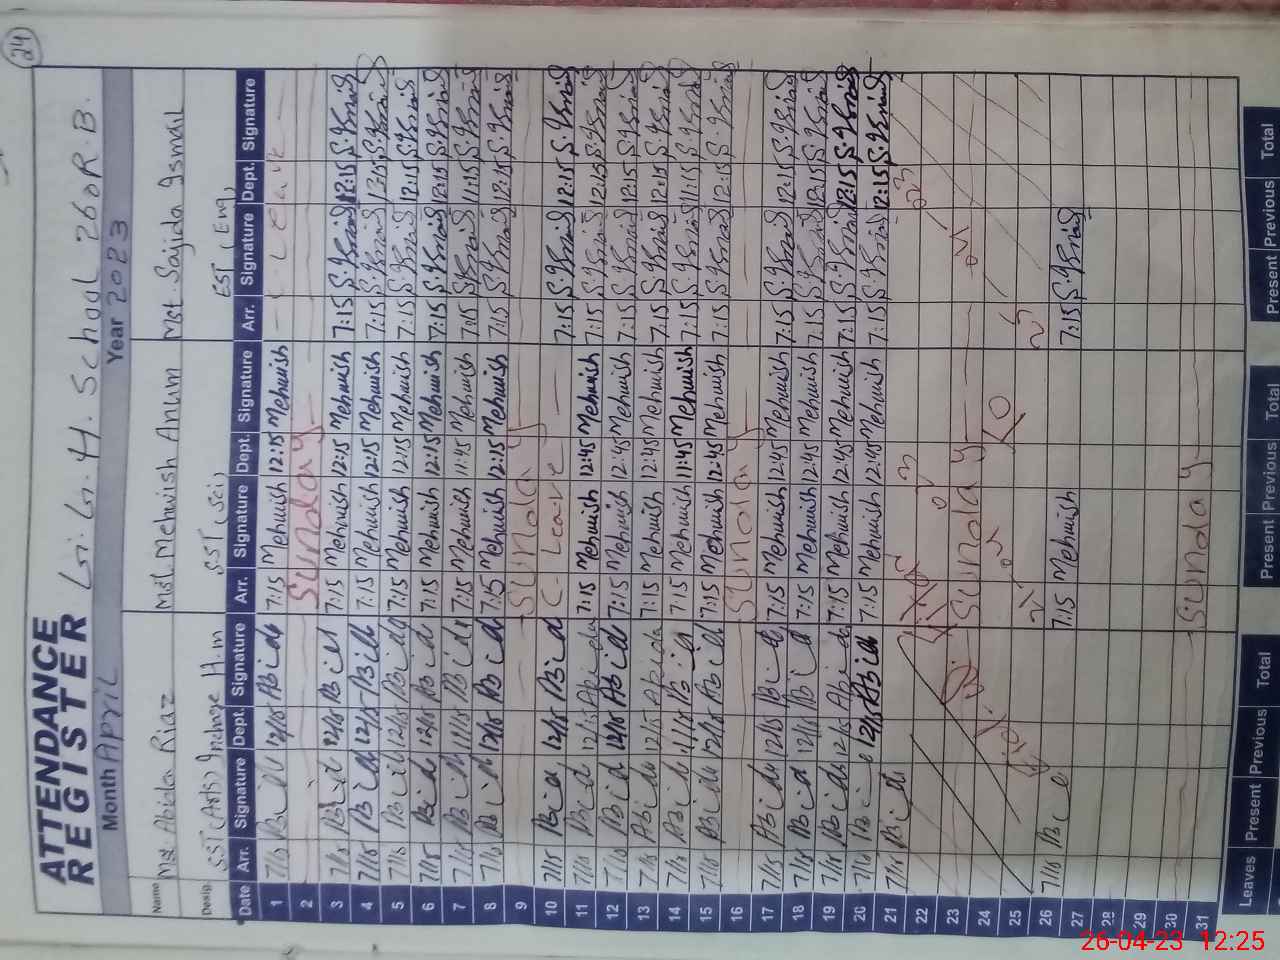 24
ATTENDANCE
REGISTER
G. G. H. School 260 R.B.
Month April Year 2023
Name Mst Abida Riaz Mst. Mehwish Anum Mst. Sajida Ismail
Desig. SST (Arts) Incharge H.m SST (Sci) EST (Eng)
Date Arr. Signature Dept. Signature Arr. Signature Dept. Signature Arr. Signature Dept. Signature
1 7/15 Abida 12/15 Abida 7:15 Mehwish 12:15 Mehwish C Leave
2 Sunday
3 7/15 Abida 12/15 Abida 7:15 Mehwish 12:15 Mehwish 7:15 S.Ismail 12:15 S.Ismail
4 7/15 Abida 12/15 Abida 7:15 Mehwish 12:15 Mehwish 7:15 S.Ismail 12:15 S.Ismail
5 7/15 Abida 12/15 Abida 7:15 Mehwish 12:15 Mehwish 7:15 S.Ismail 12:15 S.Ismail
6 7/15 Abida 12/15 Abida 7:15 Mehwish 12:15 Mehwish 7:15 S.Ismail 12:15 S.Ismail
7 7/15 Abida 11/15 Abida 7:15 Mehwish 11:45 Mehwish 7:15 S.Ismail 11:15 S.Ismail
8 7/15 Abida 12/15 Abida 7:15 Mehwish 12:15 Mehwish 7:15 S.Ismail 12:15 S.Ismail
9 Sunday
10 7/15 Abida 12/15 Abida C Leave 7:15 S.Ismail 12:15 S.Ismail
11 7/15 Abida 12/15 Abida 7:15 Mehwish 12:45 Mehwish 7:15 S.Ismail 12:15 S.Ismail
12 7/15 Abida 12/15 Abida 7:15 Mehwish 12:45 Mehwish 7:15 S.Ismail 12:15 S.Ismail
13 7/15 Abida 12/15 Abida 7:15 Mehwish 12:45 Mehwish 7:15 S.Ismail 12:15 S.Ismail
14 7/15 Abida 11/15 Abida 7:15 Mehwish 11:45 Mehwish 7:15 S.Ismail 11:15 S.Ismail
15 7/15 Abida 12/15 Abida 7:15 Mehwish 12:45 Mehwish 7:15 S.Ismail 12:15 S.Ismail
16 Sunday
17 7/15 Abida 12/15 Abida 7:15 Mehwish 12:45 Mehwish 7:15 S.Ismail 12:15 S.Ismail
18 7/15 Abida 12/15 Abida 7:15 Mehwish 12:45 Mehwish 7:15 S.Ismail 12:15 S.Ismail
19 7/15 Abida 12/15 Abida 7:15 Mehwish 12:45 Mehwish 7:15 S.Ismail 12:15 S.Ismail
20 7/15 Abida 12/15 Abida 7:15 Mehwish 12:45 Mehwish 7:15 S.Ismail 12:15 S.Ismail
21 7/15 Abida
22
23 Sunday
24
25
26 7/15 Abida 7:15 Mehwish 7:15 S.Ismail
27
28
29
30 Sunday
31
Leaves Present Previous Total Present Previous Total Present Previous Total
26-04-23 12:25